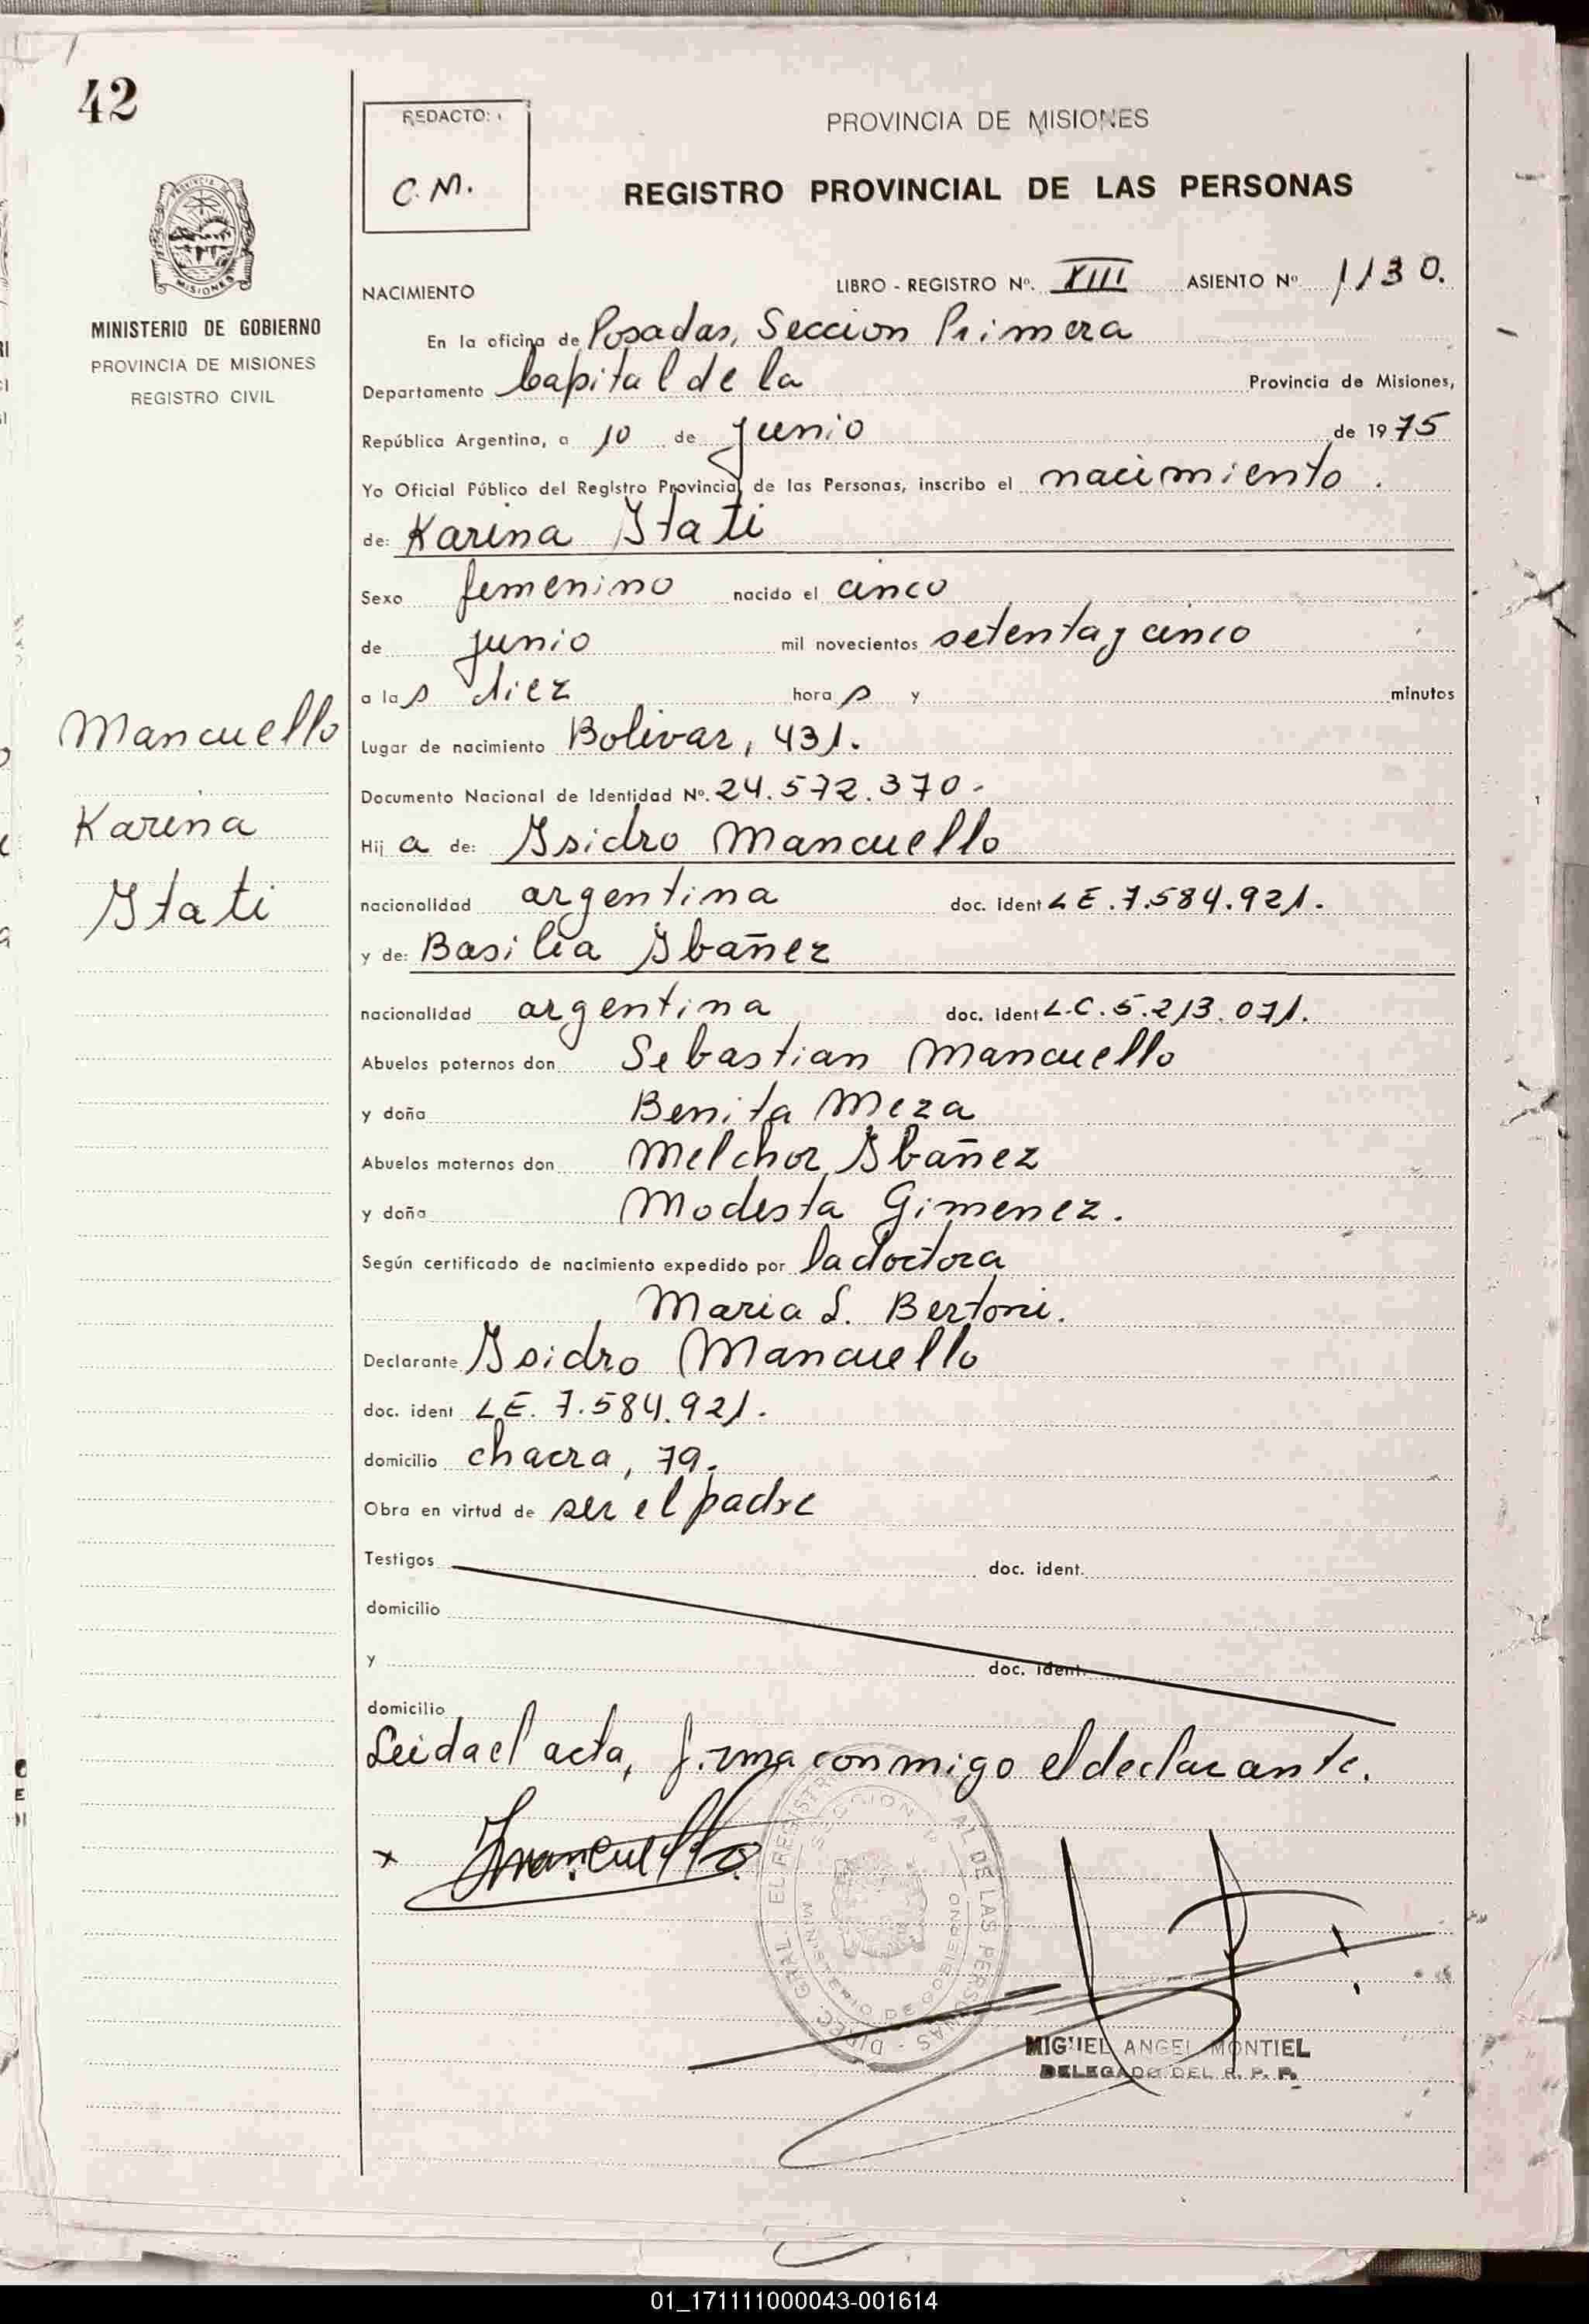 42
REDACTO:
C.M.
PROVINCIA DE MISIONES
REGISTRO PROVINCIAL DE LAS PERSONAS
MISIONES
MINISTERIO DE GOBIERNO
PROVINCIA DE MISIONES
REGISTRO CIVIL
NACIMIENTO LIBRO - REGISTRO Nº. XIII ASIENTO Nº 1130.
En la oficina de Posadas, Seccion Primera
Departamento Capital de la Provincia de Misiones,
República Argentina, a 10 de junio de 1975
Yo Oficial Público del Registro Provincial de las Personas, inscribo el nacimiento.
de: Karina Itati
Sexo femenino nacido el cinco
de junio mil novecientos setenta y cinco
a las diez horas y minutos
Mancuello
Karina
Itati
Lugar de nacimiento Bolivar, 431.
Documento Nacional de Identidad Nº. 24.572.370.
Hija de: Isidro Mancuello
nacionalidad argentina doc. ident LE.7.584.921.
y de: Basilia Ibañez
nacionalidad argentina doc. ident L.C.5.213.071.
Abuelos paternos don Sebastian Mancuello
y doña Benita Meza
Abuelos maternos don Melchor Ibañez
y doña Modesta Gimenez.
Según certificado de nacimiento expedido por la doctora
Maria S. Bertoni.
Declarante Isidro Mancuello
doc. ident L.E. 7.584.921.
domicilio chacra, 79.
Obra en virtud de ser el padre
Testigos doc. ident.
domicilio
y doc. ident.
domicilio
Leida el acta, firma conmigo el declarante.
x Mancuello
DIREC. GRAL. DEL REGISTRO AL DE LAS PERSONAS
SECCION 1ª
MINISTERIO DE GOBIERNO
MIGUEL ANGEL MONTIEL
DELEGADO DEL R. P. P.
01_171111000043-001614